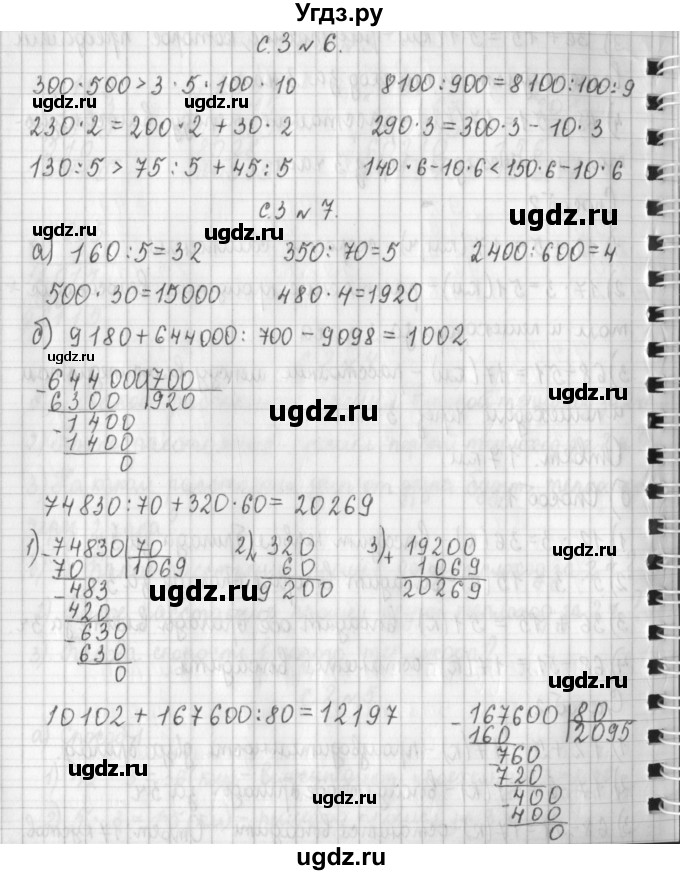 Угдз.ру
с. 3 № 6.
300 · 500 > 3 · 5 · 100 · 10 8100 : 900 = 8100 : 100 : 9
ugdz.ru ugdz.ru
230 · 2 = 200 · 2 + 30 · 2 290 · 3 = 300 · 3 - 10 · 3
130 : 5 > 75 : 5 + 45 : 5 140 · 6 - 10 · 6 < 150 · 6 - 10 · 6
с. 3 № 7.
ugdz.ru ugdz.ru ugdz.ru
а) 160 : 5 = 32 350 : 70 = 5 2400 : 600 = 4
500 · 30 = 15000 480 · 4 = 1920
б) 9180 + 644000 : 700 - 9098 = 1002
ugdz.ru
- 644000 700
6300 920
- 1400
1400
0
ugdz.ru ugdz.ru
74830 : 70 + 320 · 60 = 20269
1) - 74830 70 2) × 320 3) + 19200
70 1069 60 1069
- 483 19200 20269
420
- 630
630
0
ugdz.ru ugdz.ru
10102 + 167600 : 80 = 12197 - 167600 80
160 2095
760
720
- 400
400
0
ugdz.ru ugdz.ru
ugdz.ru